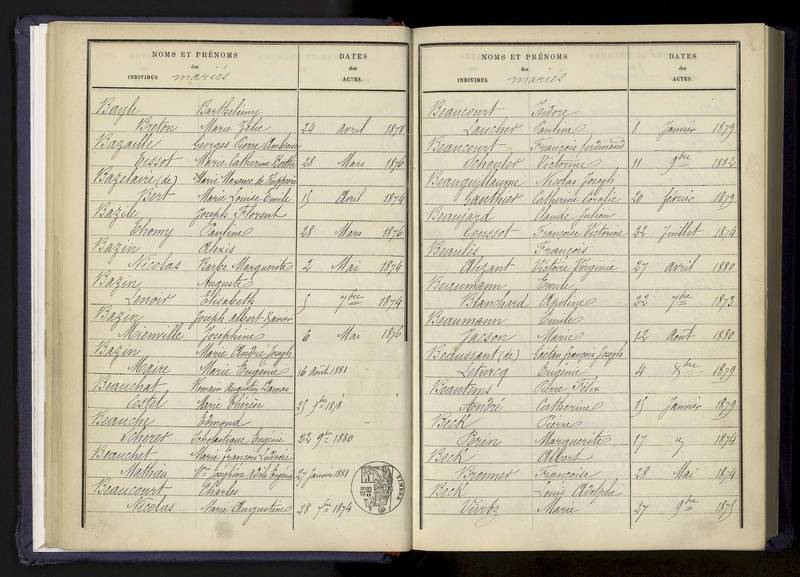 NOMS ET PRÉNOMS DATES
des des
INDIVIDUS mariés ACTES.
Bayle Barthélemy
Breton Marie Zélie 24 avril 1878
Bazaille Georges Pierre Ambroise
Cessot Marie Catherine 28 Mars 1876
Bazelaire (de) Marie Maxence de
Bert Marie Louise Emile 15 Avril 1874
Bazile Joseph Florent
Thomy Pauline 28 Mars 1876
Bazin Alexis
Nicolas Barbe Marguerite 2 Mai 1874
Bazin Auguste
Lenoir Elisabeth 5 7bre 1874
Bazin Joseph Albert Xavier
Mienville Joséphine 6 Mai 1876
Bazin Marie André Joseph
Maire Marie Eugénie 16 Août 1881
Beauchat Romain Augustin
Costel Marie Thérèse 25
Beauche Edmond
Scherer Scholastique Eugénie 22 9bre 1880
Beauchet Marie François Ludovic
Mathieu Joséphine Eugénie 27 Janvier 1881
Beaucourt Charles
Nicolas Marie Augustine 28 7bre 1874
TIMBRE
NOMS ET PRÉNOMS DATES
des des
INDIVIDUS mariés ACTES.
Beaucourt Isidore
Laucher Pauline 8 Janvier 1879
Beaucourt François ferdinand
Schouler Victorine 11 9bre 1882
Beauguillaume Nicolas Joseph
Gauthier Catherine Coralie 20 février 1879
Beaujard Claude Julien
Coussot Françoise Victorine 22 Juillet 1874
Beaulis François
Alizant Victoire Virginie 27 avril 1880
Beaumann Emile
Blanchard 22 7bre 1873
Beaumann Emile
Jacson Marie 12 Août 1880
Beaussant (de) Gaëtan françois Joseph
Letercq Eugénie 4 8bre 1879
Beautems Pierre Félix
André Catherine 15 Janvier 1879
Beck Pierre
Perin Marguerite 17 1874
Beck Albert
Bronner Françoise 28 Mai 1874
Beck Louis Adolphe
Viertz Marie 27 9bre 1875